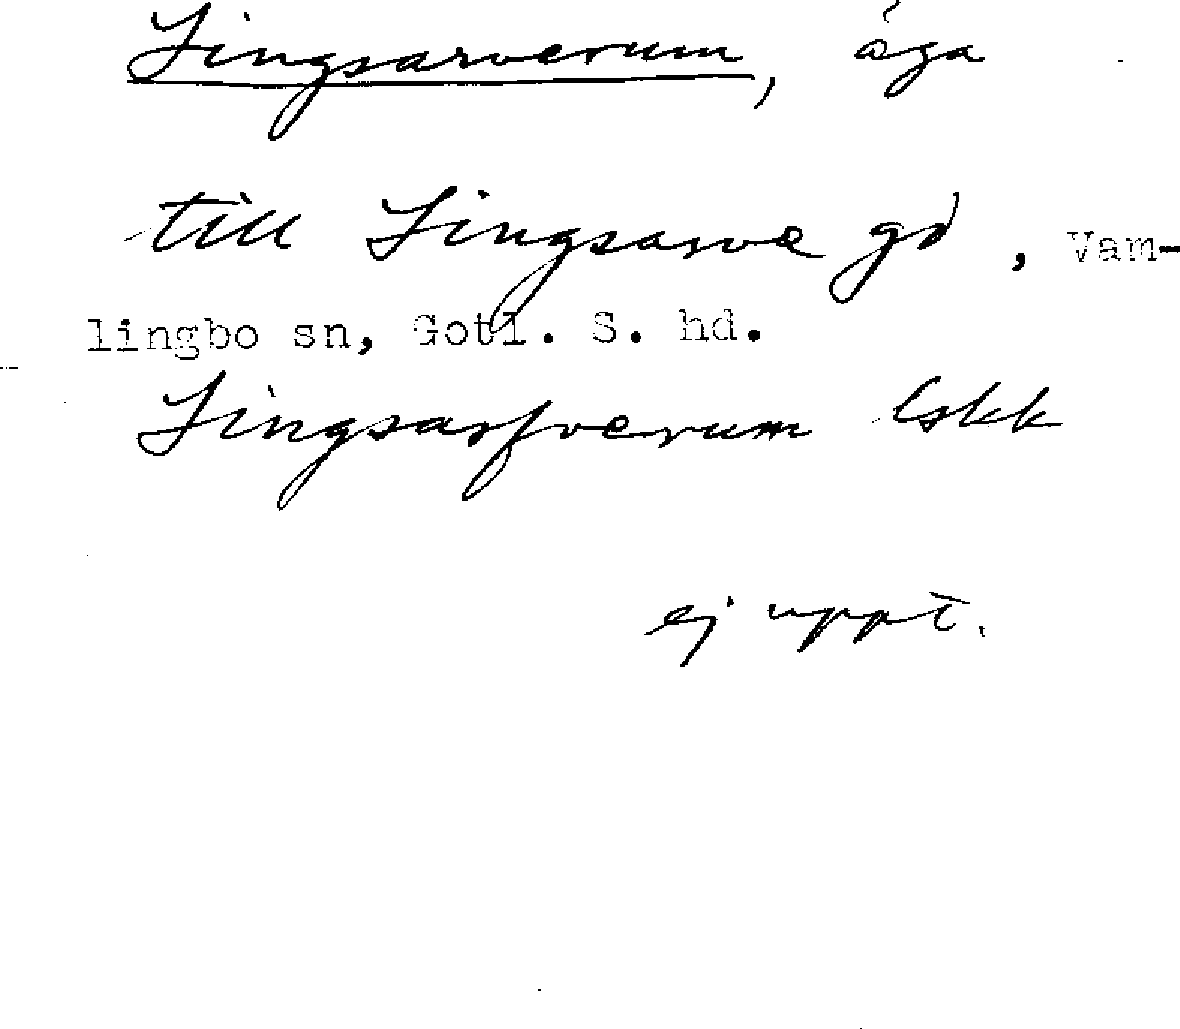 Lingsarverum, äga
till Lingsarve gd, Vam-
lingbo sn, Gotl. S. hd.
Lingsarfverum lskk
ej uppt.